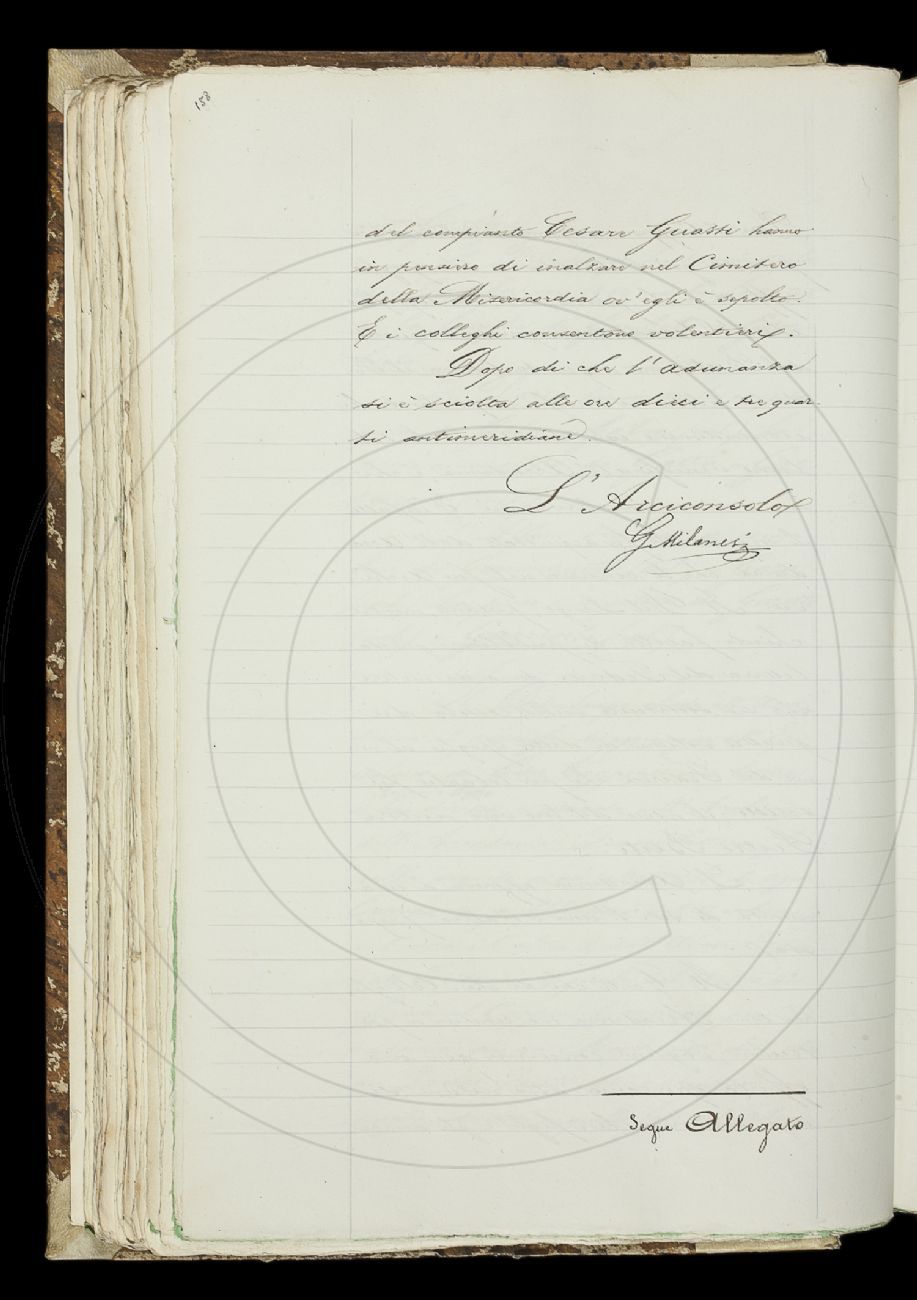 158
del compianto Cesare Guasti hanno
in pensiero di inalzare nel Cimitero
della Misericordia ov' egli è sepolto.
E i colleghi consentono volentieri.
Dopo di che l' adunanza
si è sciolta alle ore dieci e tre quar-
ti antimeridiane.
L' Arciconsolo
G. Milanesi
Segue Allegato